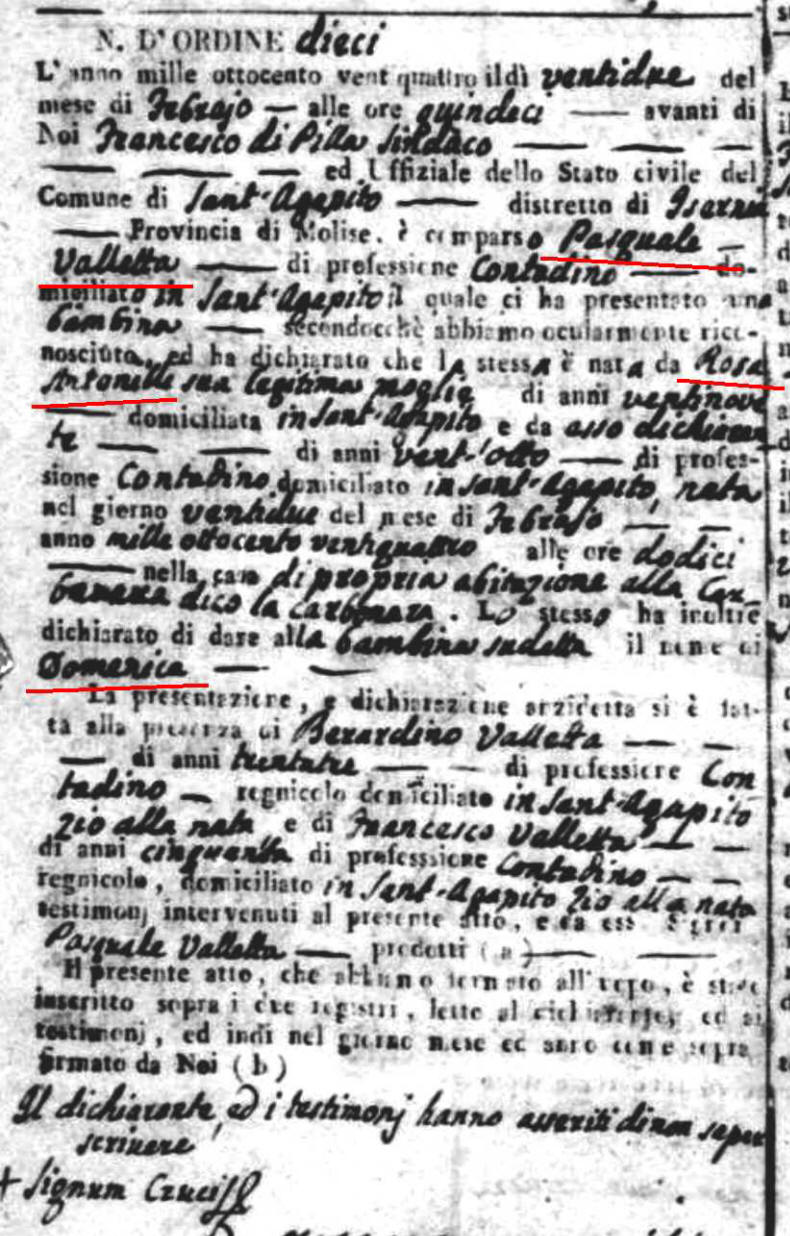 N. D'ORDINE dieci
L'anno mille ottocento vent quattro il dì ventidue del
mese di Febrajo — alle ore quindeci — avanti di
Noi Francesco di Pilla Sindaco — — —
— — — ed Uffiziale dello Stato civile del
Comune di Sant'Agapito — distretto di Isernia
— Provincia di Molise, è comparso Pasquale —
Valletta — di professione Contadino — do-
miciliato in Sant'Agapito il quale ci ha presentato una
bambina — secondocchè abbiamo ocularmente rico-
nosciuto, ed ha dichiarato che la stessa è nata da Rosa
Antonilli sua legitima moglie di anni ventinove
— domiciliata in Sant'Agapito e da esso dichiaran
te — — di anni vent'otto — di profes-
sione Contadino domiciliato in Sant'Agapito, nata
nel giorno ventidue del mese di Febrajo — —
anno mille ottocento ventiquattro alle ore dodici
— nella casa di propria abitazione alla Car-
banara dico la Carbonara. Lo stesso ha inoltre
dichiarato di dare alla bambina sudetta il nome di
Domenica — —
La presentazione, e dichiarazione anzidetta si è fat-
ta alla presenza di Berardino Valletta — —
— di anni trentatre — — di professione Con
tadino — regnicolo domiciliato in Sant'Agapito
Zio alla nata e di Francesco Valletta — —
di anni cinquanta di professione Contadino — —
regnicolo, domiciliato in Sant'Agapito Zio alla nata
testimonj intervenuti al presente atto, e da esso Signor
Pasquale Valletta — prodotti (a) — —
Il presente atto, che abbiamo formato all'uopo, è stato
inscritto sopra i due registri, letto al dichiarante, ed ai
testimonj, ed indi nel giorno mese ed anno come sopra
firmato da Noi (b)
Il dichiarante, ed i testimonj hanno asseriti di non saper
scrivere
+ Signum Crucis